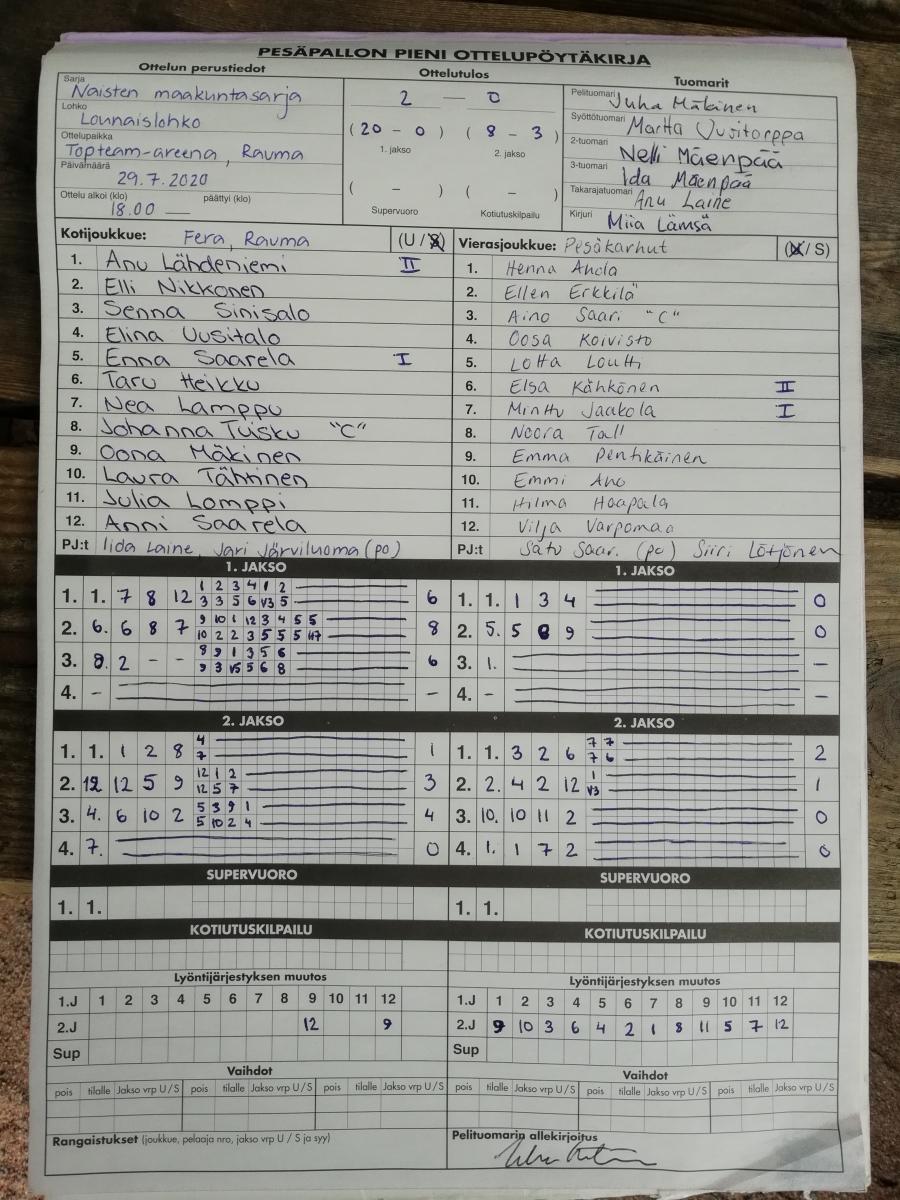 PESÄPALLON PIENI OTTELUPÖYTÄKIRJA
Ottelun perustiedot Ottelutulos Tuomarit
Sarja Naisten maakuntasarja
Lohko Lounaislohko
Ottelupaikka Topteam-areena, Rauma
Päivämäärä 29.7.2020
Ottelu alkoi (klo) päättyi (klo)
18.00 —
2 — 0
(20 - 0) (8 - 3)
1. jakso 2. jakso
( - ) ( - )
Supervuoro Kotiutuskilpailu
Pelituomari Juha Mäkinen
Syöttötuomari Martta Uusitorppa
2-tuomari Nelli Mäenpää
3-tuomari Ida Mäenpää
Takarajatuomari Anu Laine
Kirjuri Miia Lämsä
Kotijoukkue: Fera, Rauma (U / S)
1. Anu Lähdeniemi II
2. Elli Nikkonen
3. Senna Sinisalo
4. Elina Uusitalo
5. Enna Saarela I
6. Taru Heikku
7. Nea Lamppu
8. Johanna Tuisku "C"
9. Oona Mäkinen
10. Laura Tähtinen
11. Julia Lomppi
12. Anni Saarela
PJ:t Iida Laine, Jari Järviluoma (po)
Vierasjoukkue: Pesäkarhut (U / S)
1. Henna Ahola
2. Ellen Erkkilä
3. Aino Saari "C"
4. Oosa Koivisto
5. Lotta Loutti
6. Elsa Kähkönen II
7. Minttu Jaakola I
8. Noora Tall
9. Emma Pentikäinen
10. Emmi Aho
11. Hilma Haapala
12. Vilja Varpomaa
PJ:t Satu Saar. (po) Siiri Lötjönen
1. JAKSO
1. 1. 7 8 12 1 2 3 4 1 2 6
3 3 5 6 V3 5
2. 6. 6 8 7 9 10 1 12 3 4 5 5 8
10 2 2 3 5 5 5
3. 8. 2 - - 8 9 1 3 5 6 6
9 3 V5 5 6 8
4. - -
1. JAKSO
1. 1. 1 3 4 0
2. 5. 5 8 9 0
3. 1. -
4. - -
2. JAKSO
1. 1. 1 2 8 4 1
7
2. 12 12 5 9 12 1 2 3
12 5 7
3. 4. 6 10 2 5 3 9 1 4
5 10 2 4
4. 7. 0
2. JAKSO
1. 1. 3 2 6 7 7 2
7 6
2. 2. 4 2 12 1 1
V3
3. 10. 10 11 2 0
4. 1. 1 7 2 0
SUPERVUORO SUPERVUORO
1. 1. 1. 1.
KOTIUTUSKILPAILU KOTIUTUSKILPAILU
Lyöntijärjestyksen muutos
1.J 1 2 3 4 5 6 7 8 9 10 11 12
2.J 12 9
Sup
Lyöntijärjestyksen muutos
1.J 1 2 3 4 5 6 7 8 9 10 11 12
2.J 9 10 3 6 4 2 1 8 11 5 7 12
Sup
Vaihdot Vaihdot
pois tilalle Jakso vrp U/S pois tilalle Jakso vrp U/S pois tilalle Jakso vrp U/S
pois tilalle Jakso vrp U/S pois tilalle Jakso vrp U/S pois tilalle Jakso vrp U/S
Rangaistukset (joukkue, pelaaja nro, jakso vrp U / S ja syy)
Pelituomarin allekirjoitus